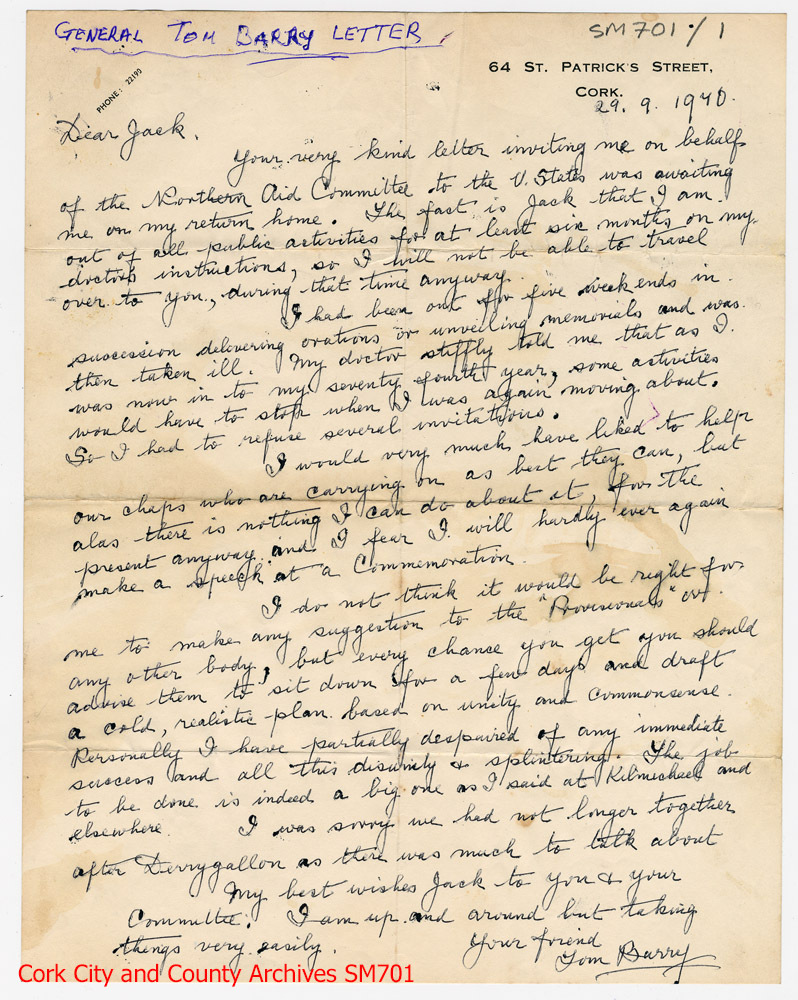 GENERAL TOM BARRY LETTER
SM701/1
PHONE: 22193
64 ST. PATRICK'S STREET,
CORK.
29. 9. 1970.
Dear Jack.
Your very kind letter inviting me on behalf
of the Northern Aid Committee to the U. States was awaiting
me on my return home. The fact is Jack that I am
out of all public activities for at least six months on my
doctors instructions, so I will not be able to travel
over to you, during that time anyway.
I had been out for five week ends in
succession delivering orations or unveiling memorials and was
then taken ill. My doctor stiffly told me that as I
was now in to my seventy fourth year, some activities
would have to stop when I was again moving about.
So I had to refuse several invitations.
I would very much have liked to help
our chaps who are carrying on as best they can, but
alas there is nothing I can do about it, for the
present anyway and I fear I will hardly ever again
make a speech at a Commemoration.
I do not think it would be right for
me to make any suggestion to the "Provisionals" or
any other body, but every chance you get you should
advise them to sit down for a few days and draft
a cold, realistic plan based on unity and commonsense.
Personally I have partially despaired of any immediate
success and all this disunity & splintering. The job
to be done is indeed a big one as I said at Kilmichael and
elsewhere. I was sorry we had not longer together
after Derrygallon as there was much to talk about
My best wishes Jack to you & your
Committee. I am up and around but taking
things very easily.
Your friend
Tom Barry
Cork City and County Archives SM701